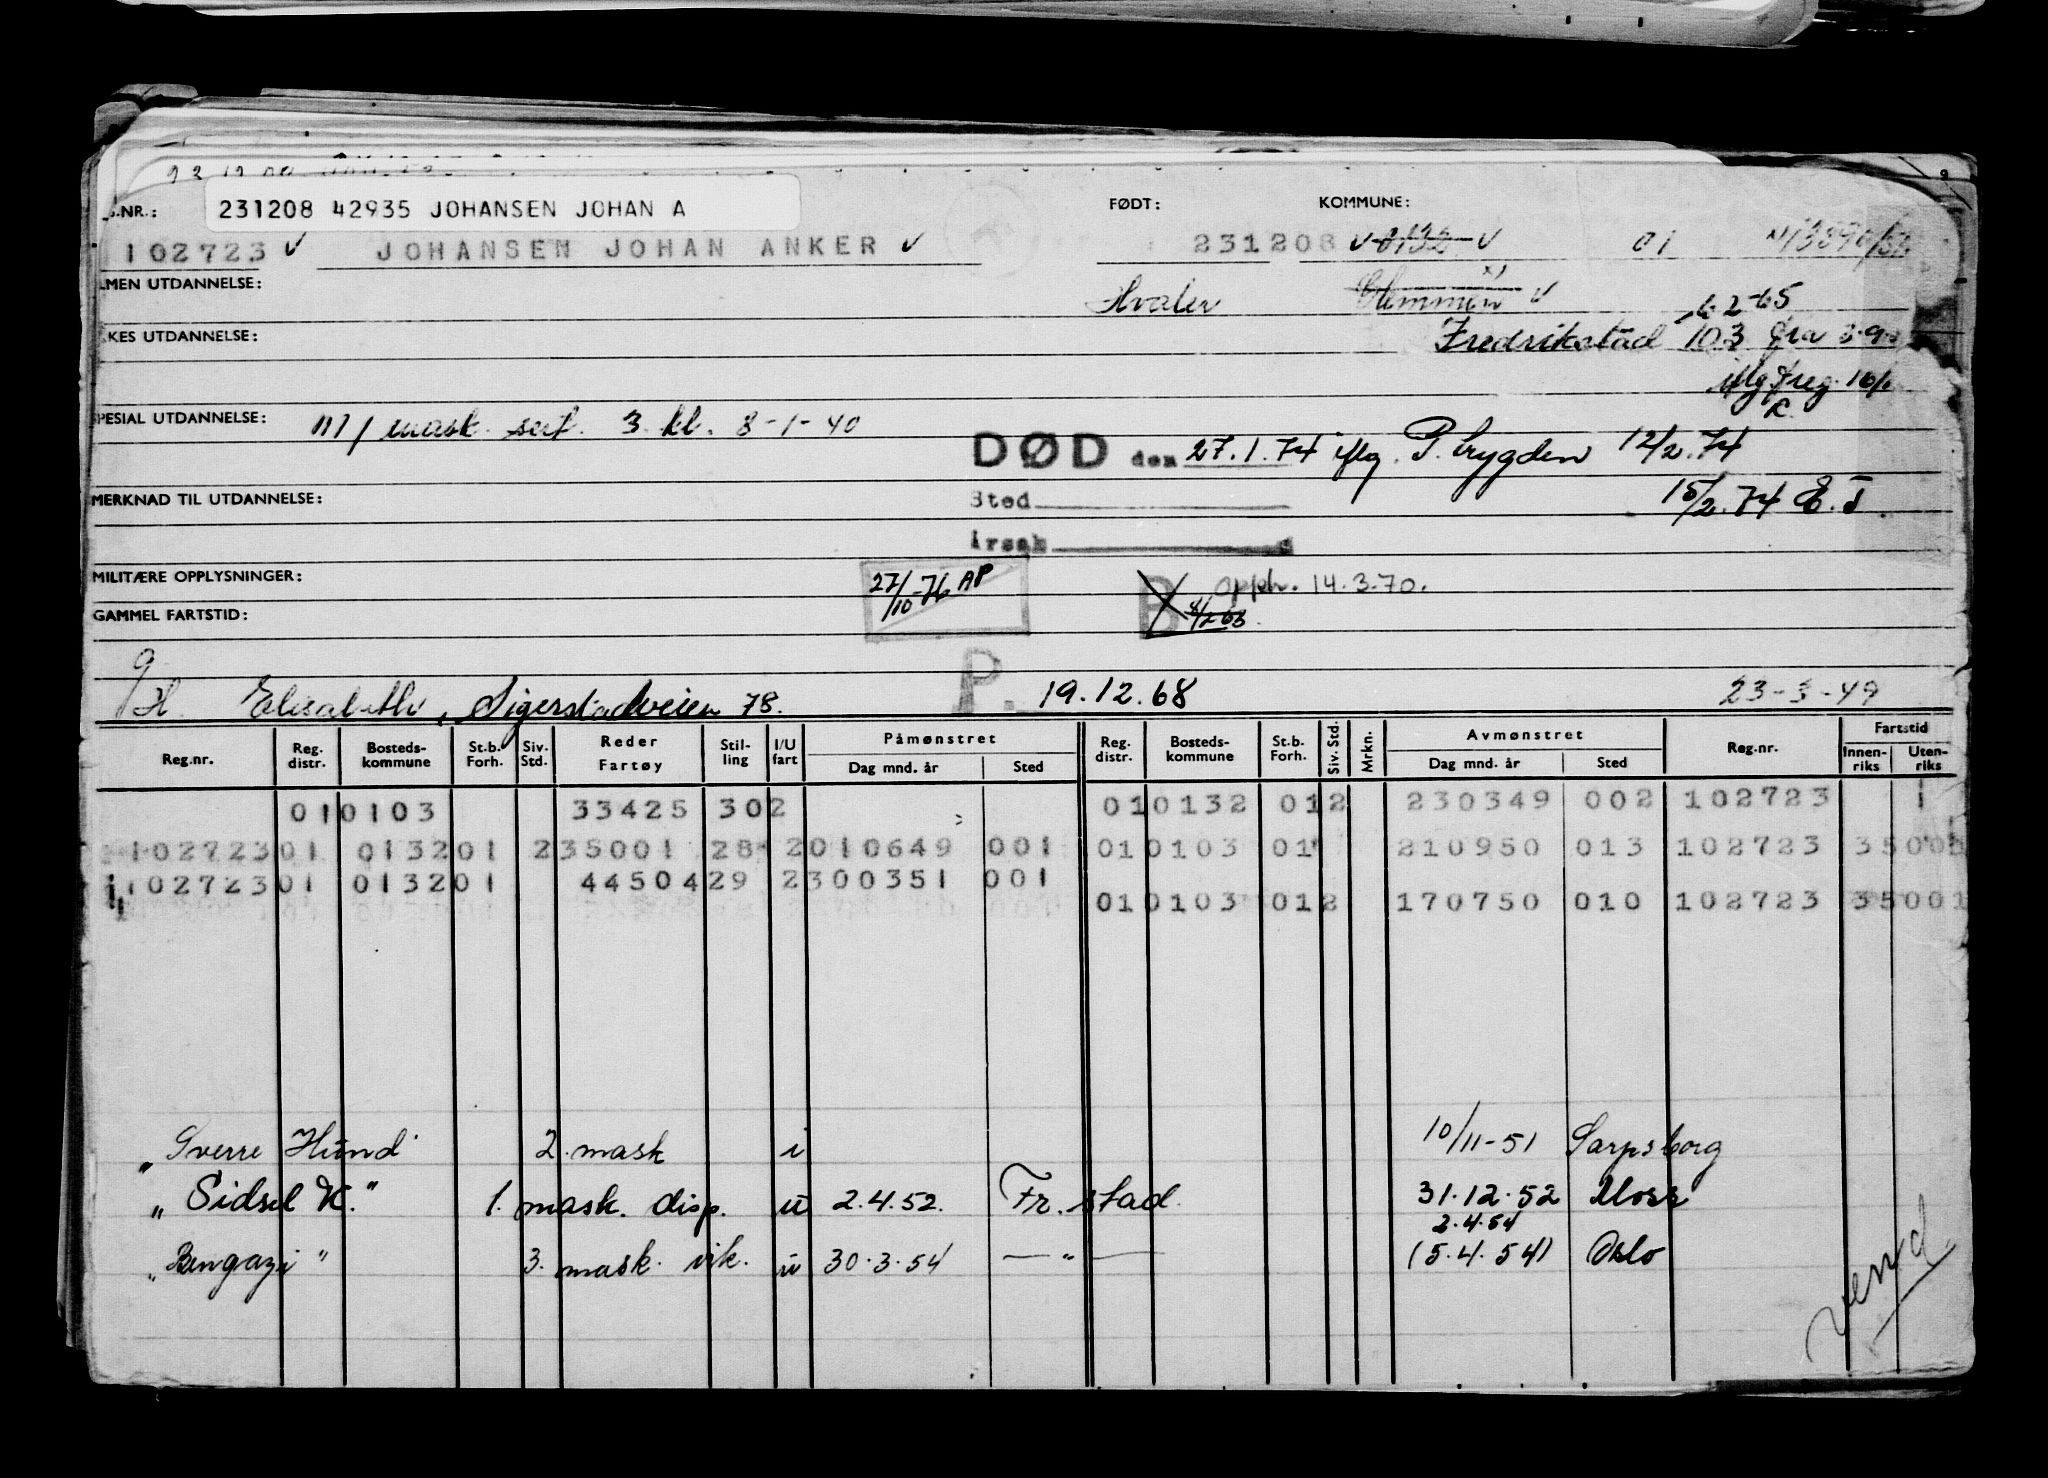 231208 42935 JOHANSEN JOHAN A
.NR.: FØDT: KOMMUNE:
102723 v JOHANSEN JOHAN ANKER v 231208 v 0132 v 01
LMEN UTDANNELSE: Hvaler Glemmen v
6.2-65
KES UTDANNELSE: Fredrikstad 103 fra
iflg freg.
SPESIAL UTDANNELSE: m/mask. sert. 3 kl. 8-1-40
DØD den 27.1.74 iflg. P. trygden 12/2.74
MERKNAD TIL UTDANNELSE: Sted 15/2.74 E.T.
Årsak
MILITÆRE OPPLYSNINGER: 27/10-76 AP B Opph. 14.3.70.
GAMMEL FARTSTID:
g
H Elisabeth, Sigerstadveien 78. P. 19.12.68 23-3-49
Reg.nr. Reg. distr. Bosteds-kommune St.b. Forh. Siv. Std. Reder Fartøy Stil-ling I/U fart Påmønstret Dag mnd. år Sted Reg. distr. Bosteds-kommune St.b. Forh. Siv. Std. Mrkn. Avmønstret Dag mnd. år Sted Reg.nr. Fartstid Innen-riks Uten-riks
010103 33425 302 010132 012 230349 002 102723 1
102723 01 013201 235001 28 2010649 001 010103 01 210950 013 102723 3500
102723 01 013201 4450429 2300351 001
010103 012 170750 010 102723 35001
„Sverre Hund" 2. mask i 10/11-51 Sarpsborg
„Sidsel K." 1. mask. disp. u 2.4.52. Fr.stad. 31.12.52 Moss
2.4.54
„Bengazi" 3. mask. vik. u 30.3.54 — " — (5.4.54) Oslo
vend